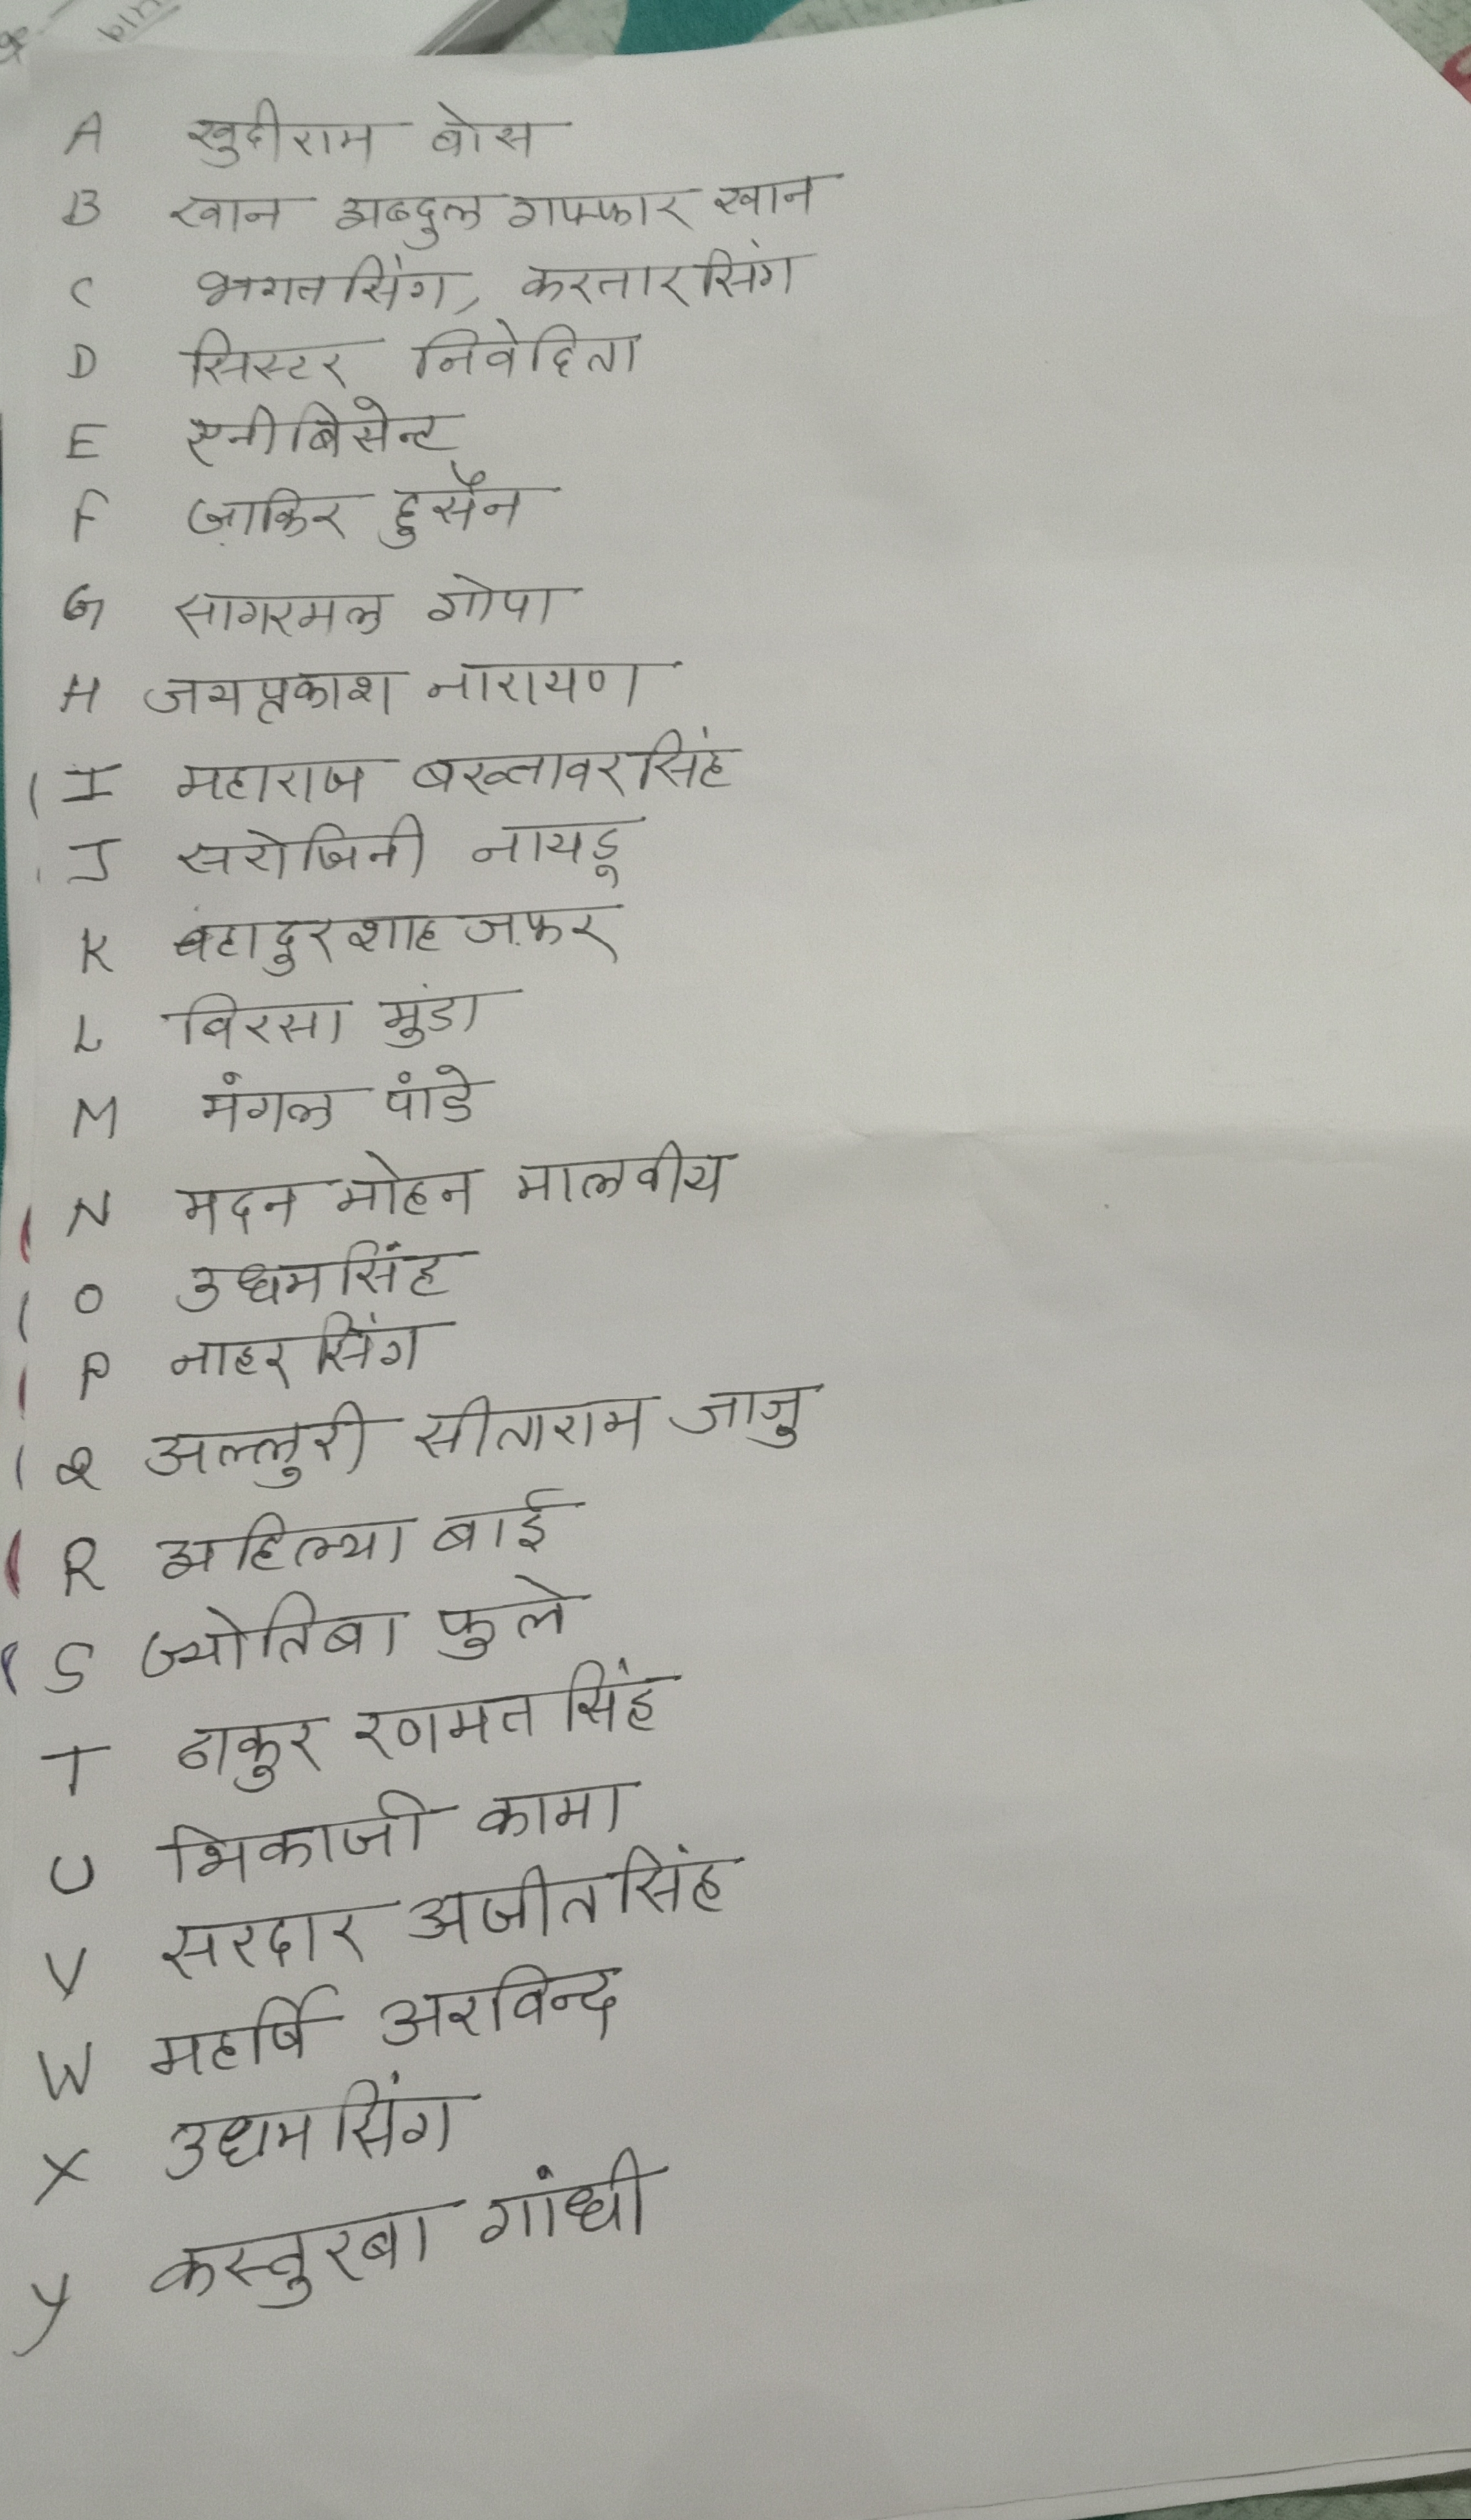 A खुदीराम बोस
B खान अब्दुल गफ्फार खान
C भगतसिंग, करतारसिंग
D सिस्टर निवेदिता
E एनीबिसेन्ट
F ज़ाकिर हुसैन
G सागरमल गोपा
H जयप्रकाश नारायण
I महाराज बख्तावरसिंह
J सरोजिनी नायडू
K बहादुरशाह जफ़र
L बिरसा मुंडा
M मंगल पांडे
N मदन मोहन मालवीय
O उधमसिंह
P नाहरसिंग
Q अल्लुरी सीताराम जाजु
R अहिल्या बाई
S ज्योतिबा फुले
T ठाकुर रणमतसिंह
U भिकाजी कामा
V सरदार अजीतसिंह
W महर्षि अरविन्द
X उधमसिंग
y कस्तुरबा गांधी